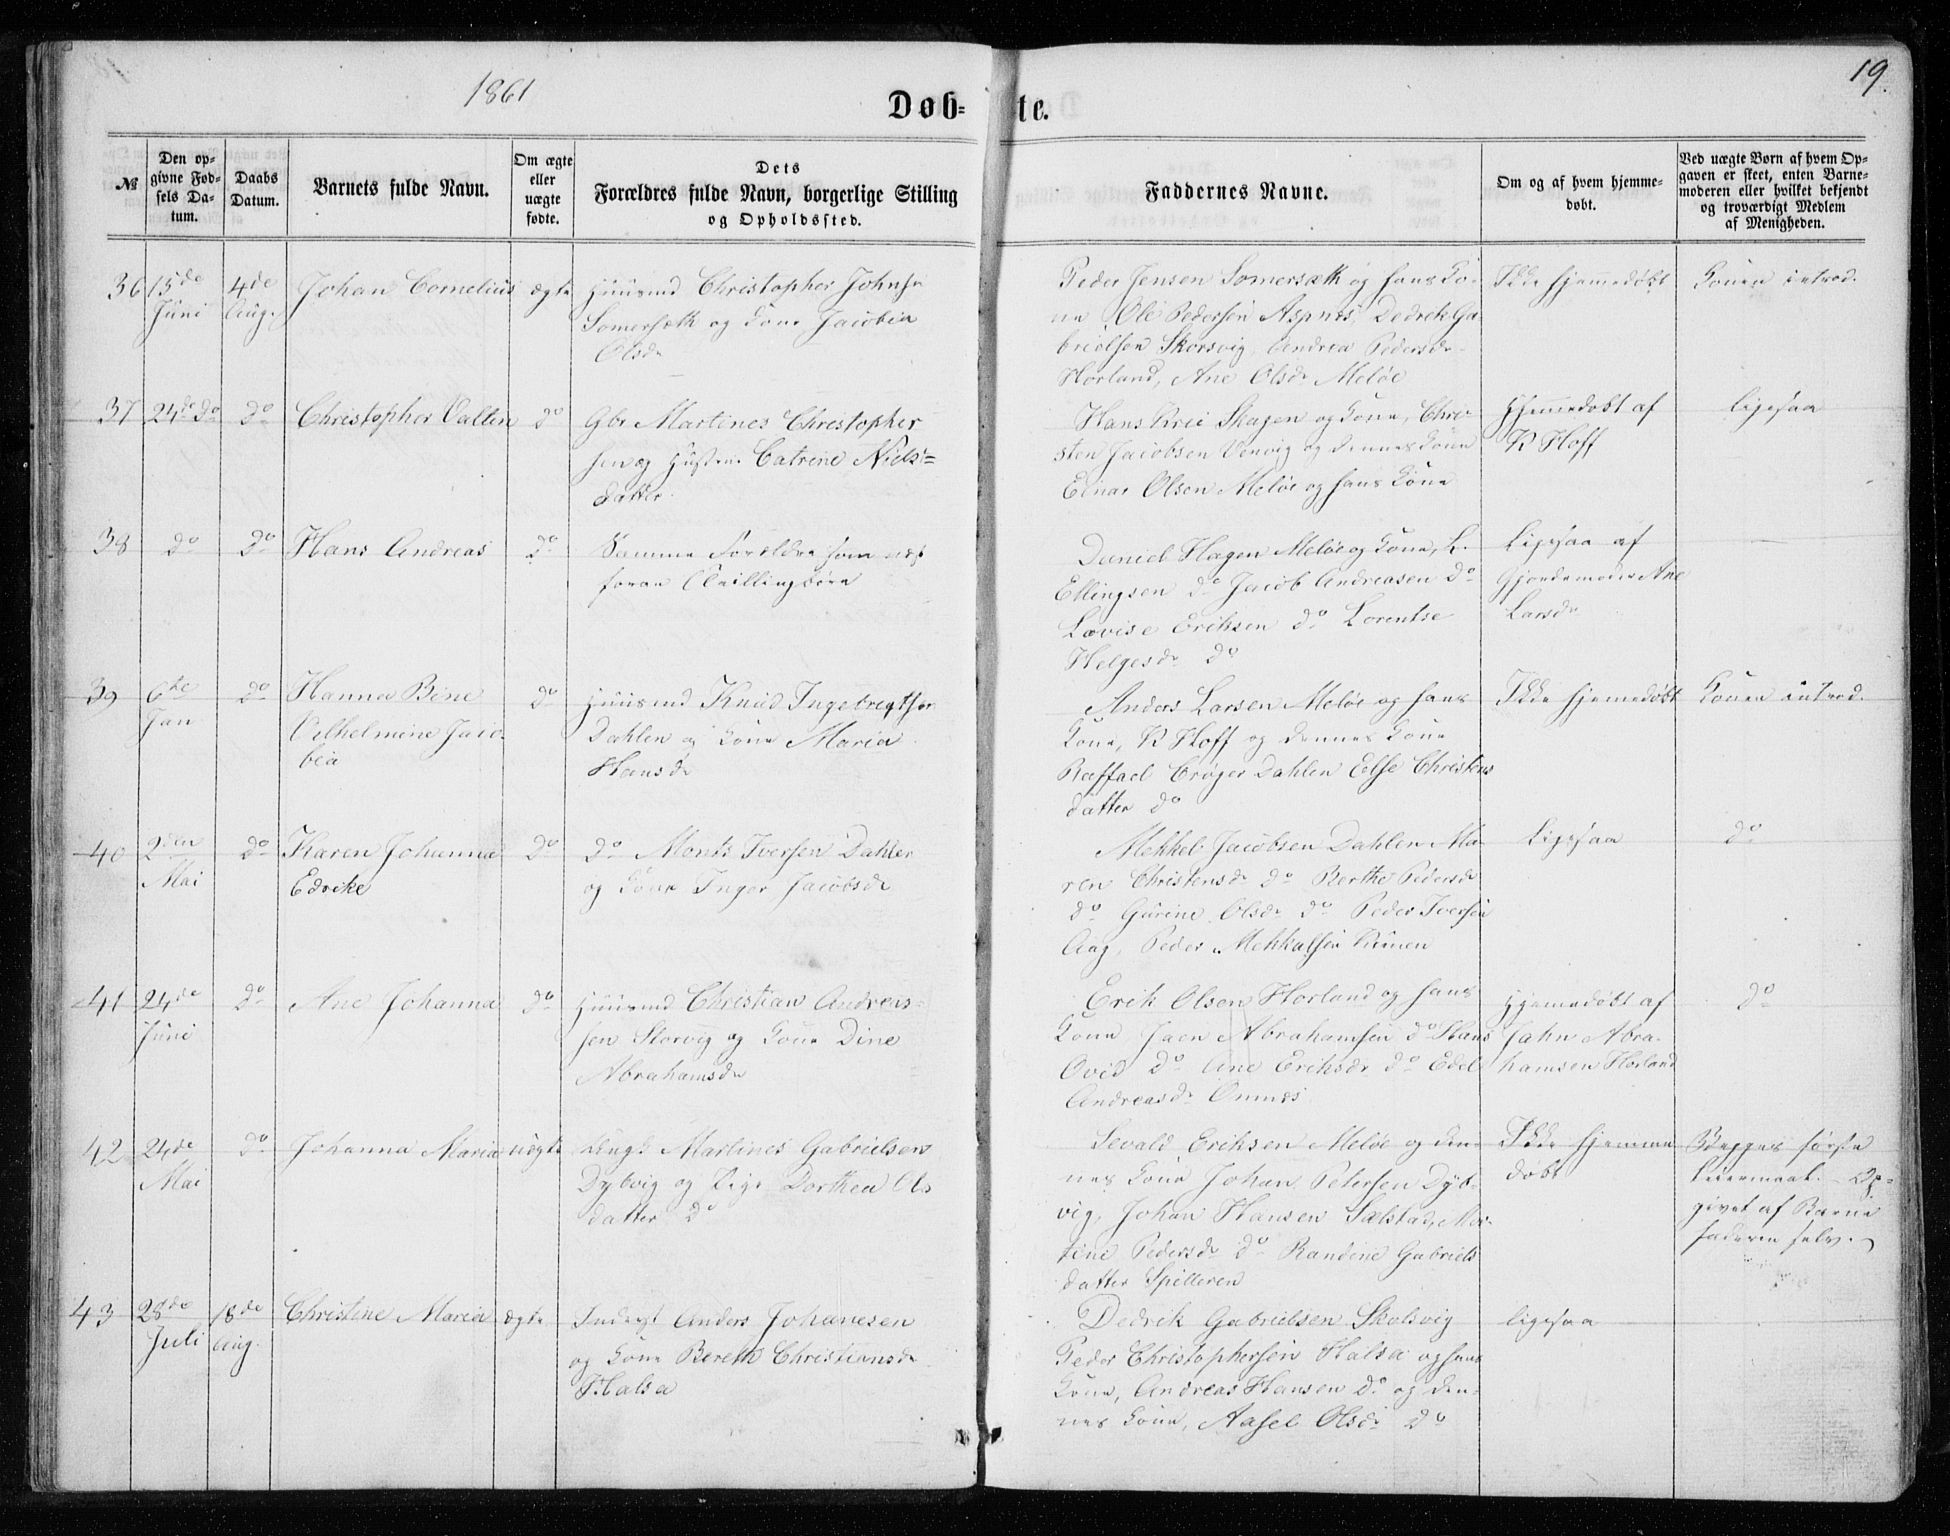 1861
19.
Døb-
te.
№
Den op-
givne Fød-
sels Da-
tum.
Daabs
Datum.
Barnets fulde Navn.
Om ægte
eller
uægte
fødte.
Dets
Forældres fulde Navn, borgerlige Stilling
og Opholdssted.
Faddernes Navne.
Om og af hvem hjemme-
døbt.
Ved uægte Børn af hvem Op-
gaven er skeet, enten Barne-
moderen eller hvilket bekjendt
og troværdigt Medlem
af Menigheden.
36
15de
Juni
4de
Aug.
Johan Cornelius
ægte
Huusmd Christopher Johns
Somersæth og Kone Jacobia
Olsdr
Peder Jensen Somersæth og hans Ko-
ne Ole Pedersen Aspnes, Dedrik Ga-
brielsen Skorsvig, Andrea Pedersdr
Horland, Ane Olsdr Meløe
Ikke hjemmedøbt
Konen introd.
37
24de do
do
Christopher Valtin
do
Gbr Martines Christopher
sen og Hustru Catrine Niels-
datter.
Hans Krie Skagen og Kone, Chri-
sten Jacobsen Venvig og dennes Kone
Einar Olsen Meløe og hans Kone
Hjemmedøbt af
K Hoff
ligesaa
38
do
do
Hans Andreas
do
Samme Forældre som næst
foran Tvillingbørn
Daniel Hagen Meløe og Kone, L.
Ellingsen do Jacob Andreasen do
Lovise Eriksen do Lorentse
Helgesdr do
Ligesaa af
Gjordemoder Ane
Larsdr
39
6te
Jan
do
Hanna Bine
Vilhelmine Jaco-
bia
do
Huusmd Knud Ingebregtsen
Dahlen og Kone Maria
Hansdr
Anders Larsen Meløe og hans
Kone, K Hoff og dennes Kone
Raffael Crøger Dahlen Else Christens
datter do
Ikke hjemmedøbt
Konen introd.
40
2den
Mai
do
Karen Johanna
Edrike
do
do Monts Iversen Dahlen
og Kone Inger Jacobsdr
Mekkel Jacobsen Dahlen Ma-
ren Christensdr do Berthe Pedersdr
do Gurine Olsdr do Peder Iversen
Aag, Peder Mekkelsen
Ligesaa
do
41
24de
Juni
do
Ane Johanna
do
Huusmd Christian Andreas-
sen Storvig og Kone Dine
Abrahamsdr
Erik Olsen Horland og hans
Kone Jaen Abrahamsen do Hans
Ovid do Ane Eriksdr do Edel
Andreasdr Ønnes
Hjemmedøbt af
Jahn Abra-
hamsen Horland
do
42
24de
Mai
do
Johanna Maria
uægte
Ungk Martines Gabrielsen
Dybvig og Pige Dorthea Ols
datter do
Sevald Eriksen Meløe og den-
nes Kone Johan Petersen Dyb-
vig, Johan Hansen Sælstad, Mar-
tine Pedersdr do Randine Gabriels
datter Spilleren
Ikke hjemme
døbt
Begges første
Leiermaal. Op-
givet af Barne
faderen selv.
43
28de
Juli
18de
Aug.
Christine Maria
ægte
Inderst Anders Johanesen
og Kone Bereth Christiansdr
Halsa
Dedrik Gabrielsen Skolsvig
Peder Christophersen Halsa og hans
Kone, Andreas Hansen do og den-
nes Kone, Aasel Olsdr do
ligesaa